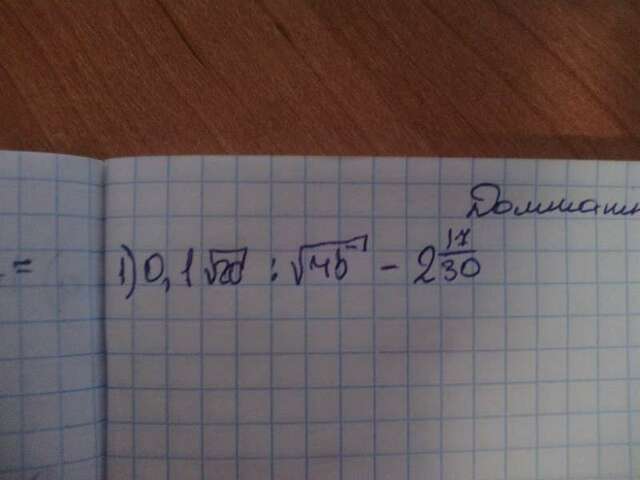 Домашн
=
1) 0,1√20 : √45⁻¹ - 2 17/30